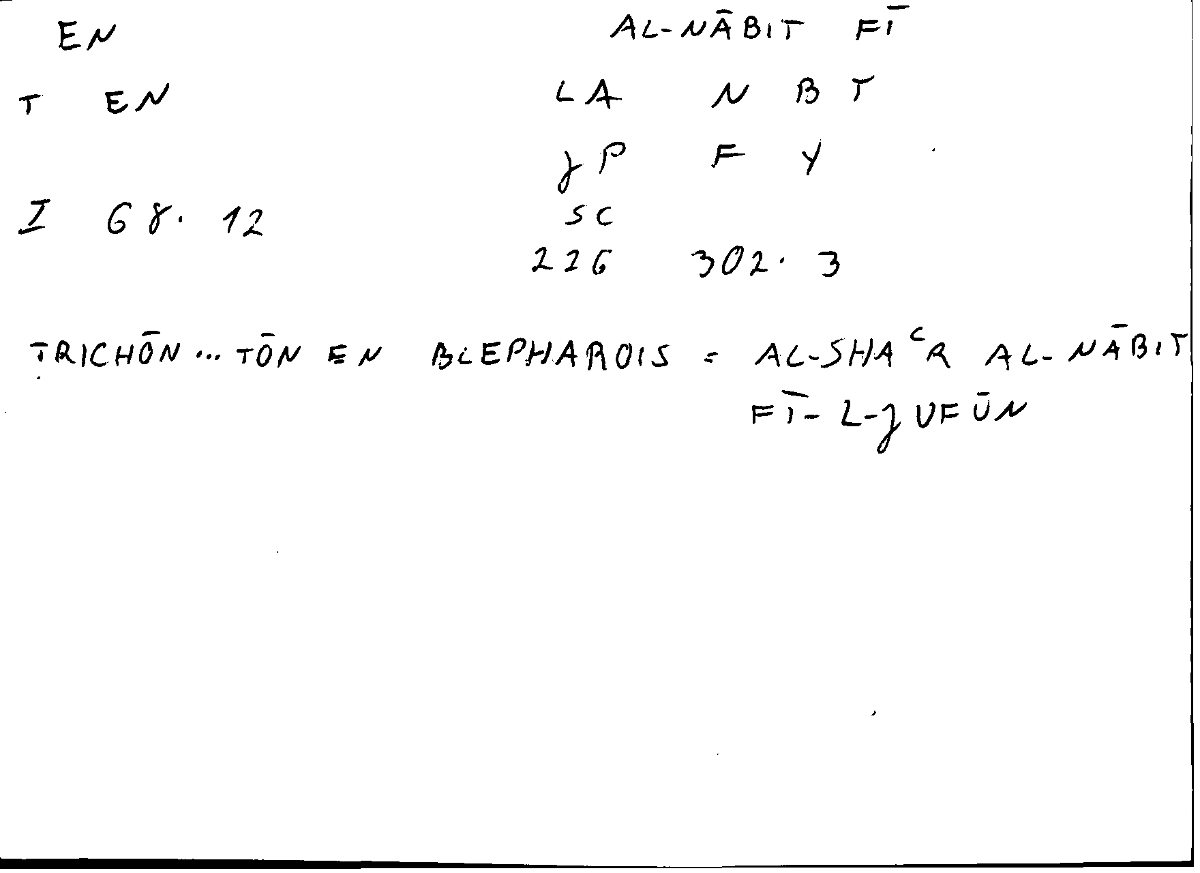 EN AL-NĀBIT FĪ
T EN LA N B T
ȷP F Y
I 68. 12 SC
226 302. 3
TRICHŌN... TŌN EN BLEPHAROIS = AL-SHAᶜR AL-NĀBIT
FĪ-L-ȷUFŪN